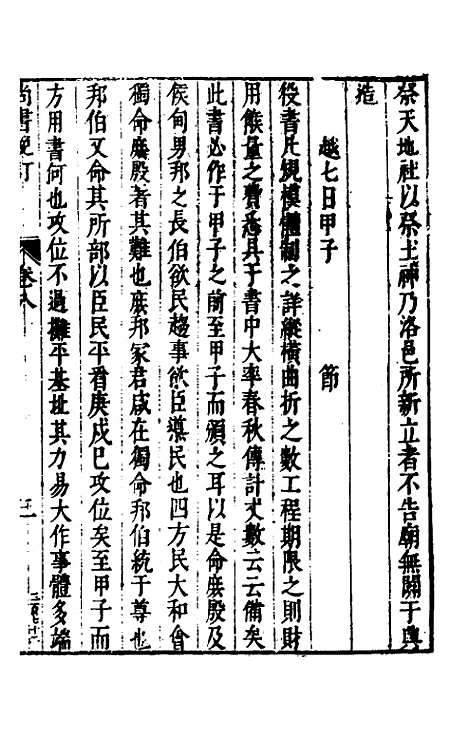 祭天地社以祭土神乃洛邑所新立者不告廟無關于興
造
越七日甲子　節
役書凡規模體制之詳縱橫曲折之數工程期限之則財
用餱量之費悉具于書中大率春秋傳計丈數云云備矣
此書必作于甲子之前至甲子而頒之耳以是命庶殷及
侯甸男邦之長伯欲民趨事飲臣導民也四方民大和會
獨命庶殷者其難也庶邦冢君咸在獨命邦伯統于尊也
邦伯又命其所部以臣民平看庚戌巳攻位矣至甲子而
方用書何也攻位不過攤平基址其力易大作事體多端
尚書晚訂　卷八